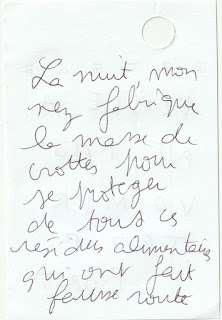 La nuit, mon
nez fabrique
la masse de
crottes pour
se proteger
de tous ces
résidus alimentaires
qui ont fait
fausse route